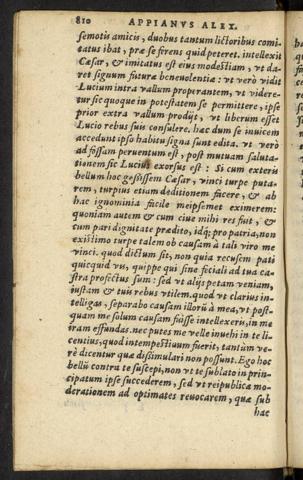 810 APPIANVS ALEX.
semotis amicis, duobus tantum lictoribus comi
tatus ibat, præ se ferens quid peteret. intellexit
Cæsar, & imitatus est eius modestiam, vt da-
ret signum futuræ beneuolentiæ: vt verò vidit
Lucium intra vallum properantem, vt videre-
tur sic quoque in potestatem se permittere, ipse
prior extra vallum prodijt, vt liberum esset
Lucio rebus suis consulere. hac dum se inuicem
accedunt ipso habitu signa sunt edita. vt verò
ad fossam peruentum est, post mutuam saluta-
tionem sic Lucius exorsus est: Si cum exteris
bellum hoc gessissem Cæsar, vinci turpe puta-
rem, turpius etiam deditionem facere, & ab
hac ignominia facile meipsemet eximerem:
quoniam autem & cum ciue mihi res fuit, &
cum pari dignitate prædito, idq; pro patria, non
existimo turpe talem ob causam à tali viro me
vinci. quod dictum sit, non quia recusem pati
quicquid vis, quippe qui sine feciali ad tua ca-
stra profectus sum: sed vt alijs petam veniam,
iustam & tuis rebus vtilem. quod vt clarius in-
telligas, separabo causam illorũ à mea, vt post-
quam me solum causam fuisse intellexeris, in me
iram effundas. nec putes me velle inuehi in te li-
centius, quod intempestiuum fuerit, tantùm ve-
rè dicentur quæ dissimulari non possunt. Ego hoc
bellũ contra te suscepi, non vt te sublato in prin-
cipatum ipse succederem, sed vt reipublicæ mo-
derationem ad optimates reuocarem, quæ sub
hac